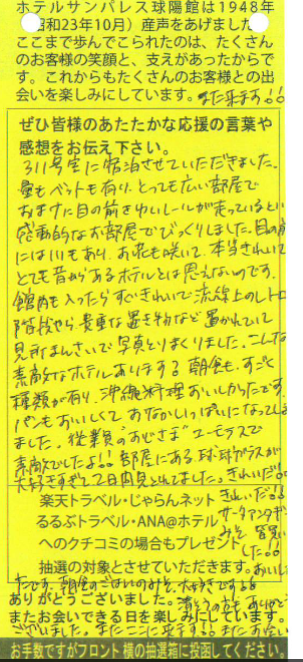 ホテルサンパレス球陽館は1948年
(昭和23年10月）産声をあげました
ここまで歩んでこられたのは、たくさん
のお客様の笑顔と、支えがあったからで
す。これからもたくさんのお客様との出
会いを楽しみにしています。また来ます!!
ぜひ皆様のあたたかな応援の言葉や
感想をお伝え下さい。
311号室に宿泊させていただきました。
畳もベットも有り、とっても広い部屋で
おまけに目の前をゆいレールが走っているとい
感動的なお部屋でびっくりしました。目の前
には川もあり、お花も咲いて、本当きれいで
とても昔からあるホテルとは思えないのです。
館内も入ったらすぐきれいで流線上のレトロ
階段やら貴重な置き物など置かれていて
見所まんさいで写真とりまくりました。こんな
素敵なホテルありすぎる 朝食も、すごく
種類が有り、沖縄料理おいしかったです
パンもおいしくて、おなかいっぱいになってし
ました。従業員"おじさま" ユーモラスで
素敵でしたよ!! 部屋にある球・球ガラスが
大好きすぎて2日間見とれてました。きれいだ!
楽天トラベル・じゃらんネット
るるぶトラベル・ANA@ホテル
へのクチコミの場合もプレゼント
抽選の対象とさせていただきます。
きれいだ!!
サーターアンダギ
みそ 皆買い
した!!
おいし
たです、朝食のごはんのみそ、大好きです!!
ありがとうございました。
またお会いできる日を楽しみにしています。
ございました。またここに来する!!
お手数ですがフロント横の抽選箱に投函してください。